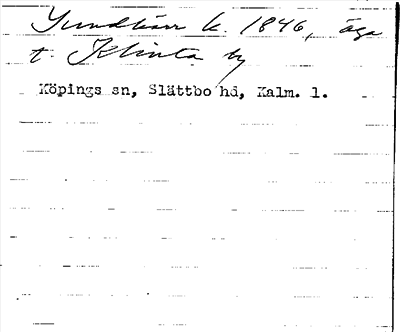 k. 1846, äga
t. Klinta by
Köpings sn, Slättbo hd, Kalm. l.